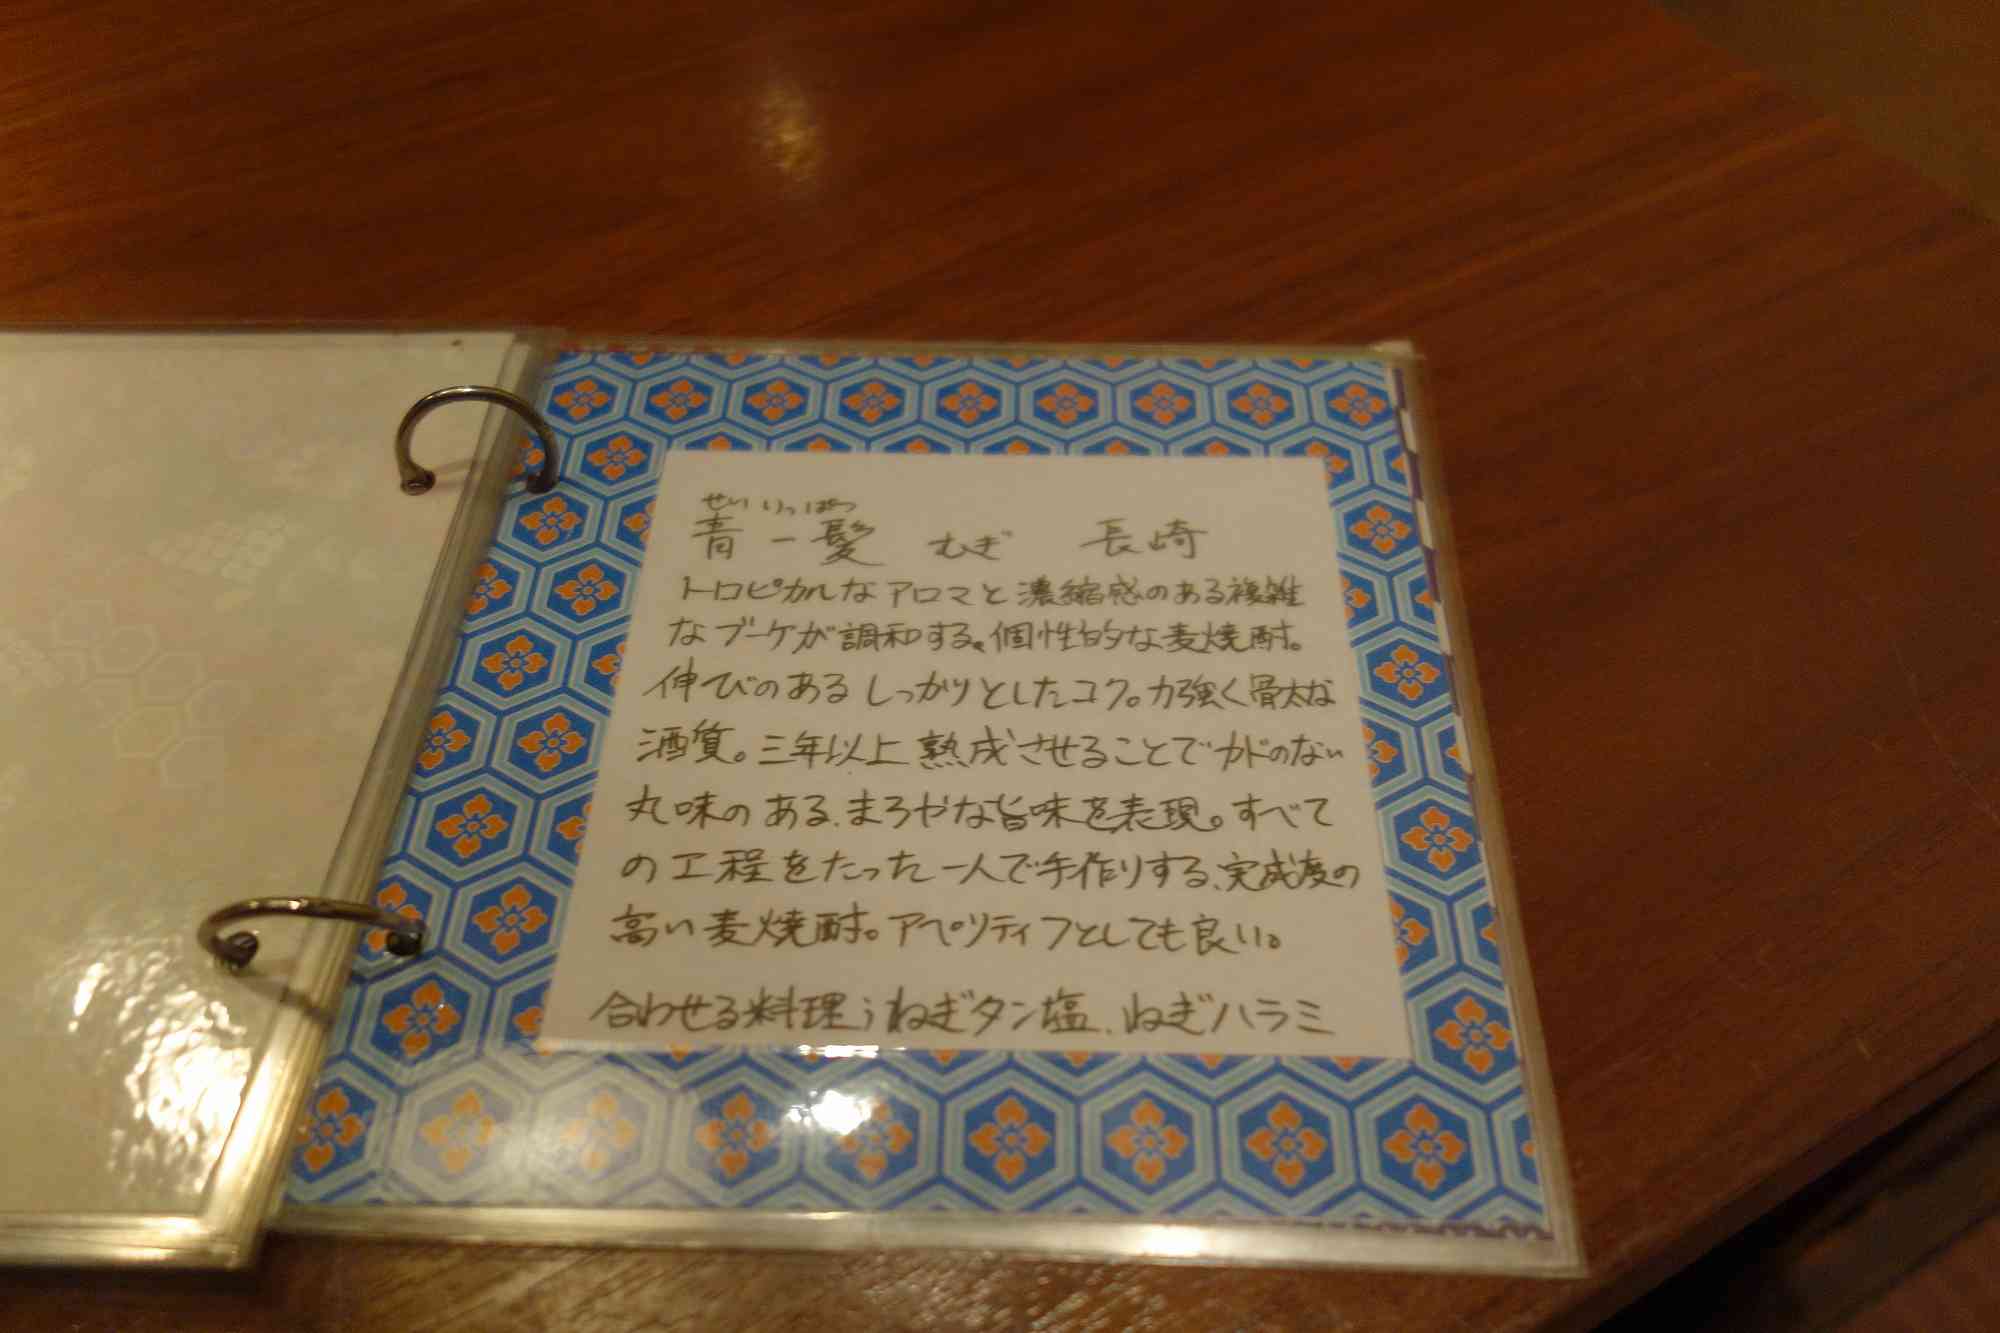 せい いっぱつ
青一髪 むぎ 長崎
トロピカルなアロマと濃縮感のある複雑
なブーケが調和する、個性的な麦焼酎。
伸びのあるしっかりとしたコク。力強く骨太な
酒質。三年以上熟成させることでカドのない
丸味のある、まろやかな旨味を表現。すべて
の工程をたった一人で手作りする、完成度の
高い麦焼酎。アペリティフとしても良い。
合わせる料理；ねぎタン塩、ねぎハラミ